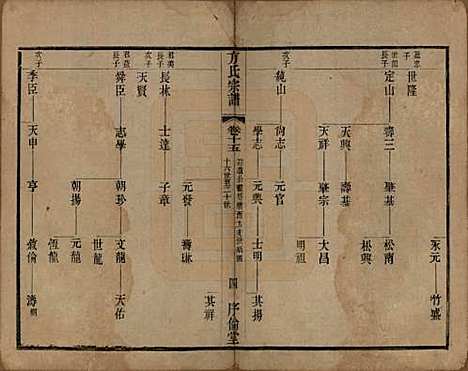 世隆
定山 壽三 肇基 松南 永元 竹盛
天興 壽基 松興
天祥 肇宗 大昌
明祖
長子
繞山
尙志 元官
學志 元興 士明 其揚
方氏宗譜
卷十五
十六世至二十世
四
序倫堂
長子
長林 士達 子章 其祥
天賢 元發 壽琳
長子
舜臣 志學 朝珍 文龍 天佑
世龍
朝揚 元龍
恆龍
次子
季臣 天申 亨 敘倫 濤